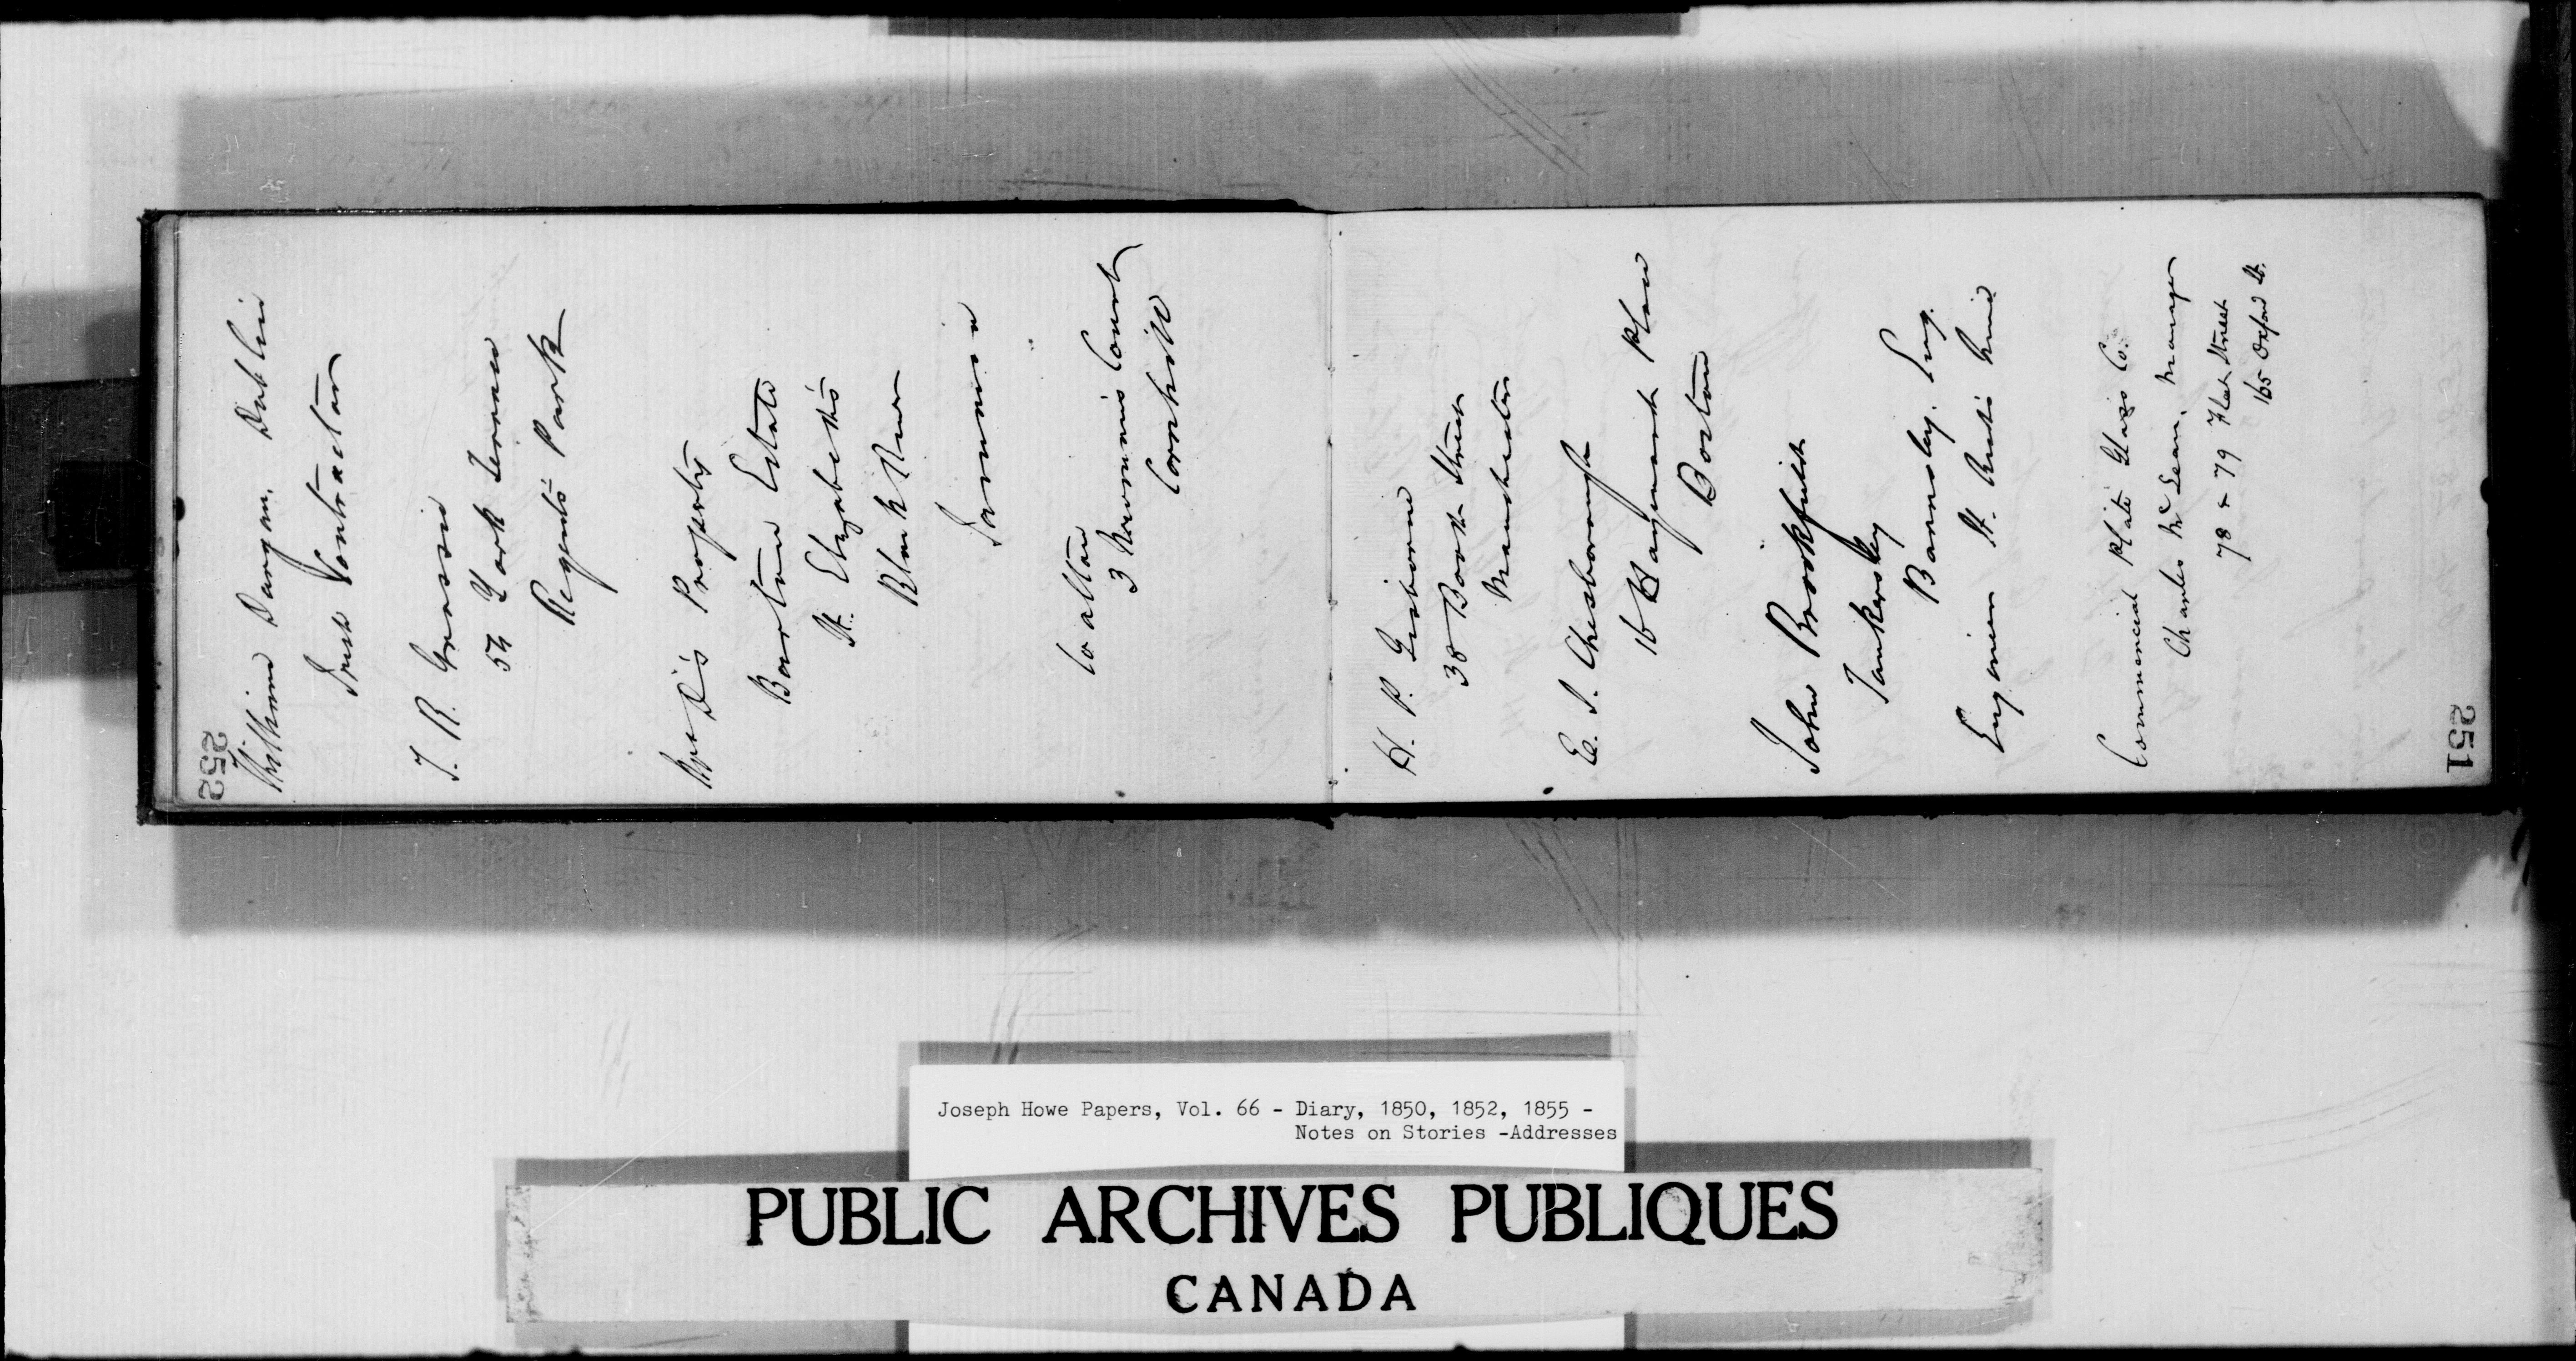 252
William Dargan, Dublin
Irish Contractor
T. R. Grassie
54 York Terrace
Regents Park
Property
Barton Estate
St. Elizabeth's
Black River
Jamaica
Walton
3 Newman's Court
Cornhill
H. P. Gisborne
38 Booth Street
Manchester
E. S. Chesborough
16 Haymarket Place
Boston
John Brookfield
Tankersley
Barnsley. Eng.
Engineer St. Line
Commercial Plate Glass Co.
Charles McLean, Manager
78 & 79 Fleet Street
165 Oxford St.
251
Joseph Howe Papers, Vol. 66 - Diary, 1850, 1852, 1855 -
Notes on Stories -Addresses
PUBLIC ARCHIVES PUBLIQUES
CANADA